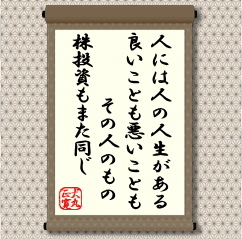 人には人の人生がある
良いことも悪いことも
その人のもの
株投資もまた同じ